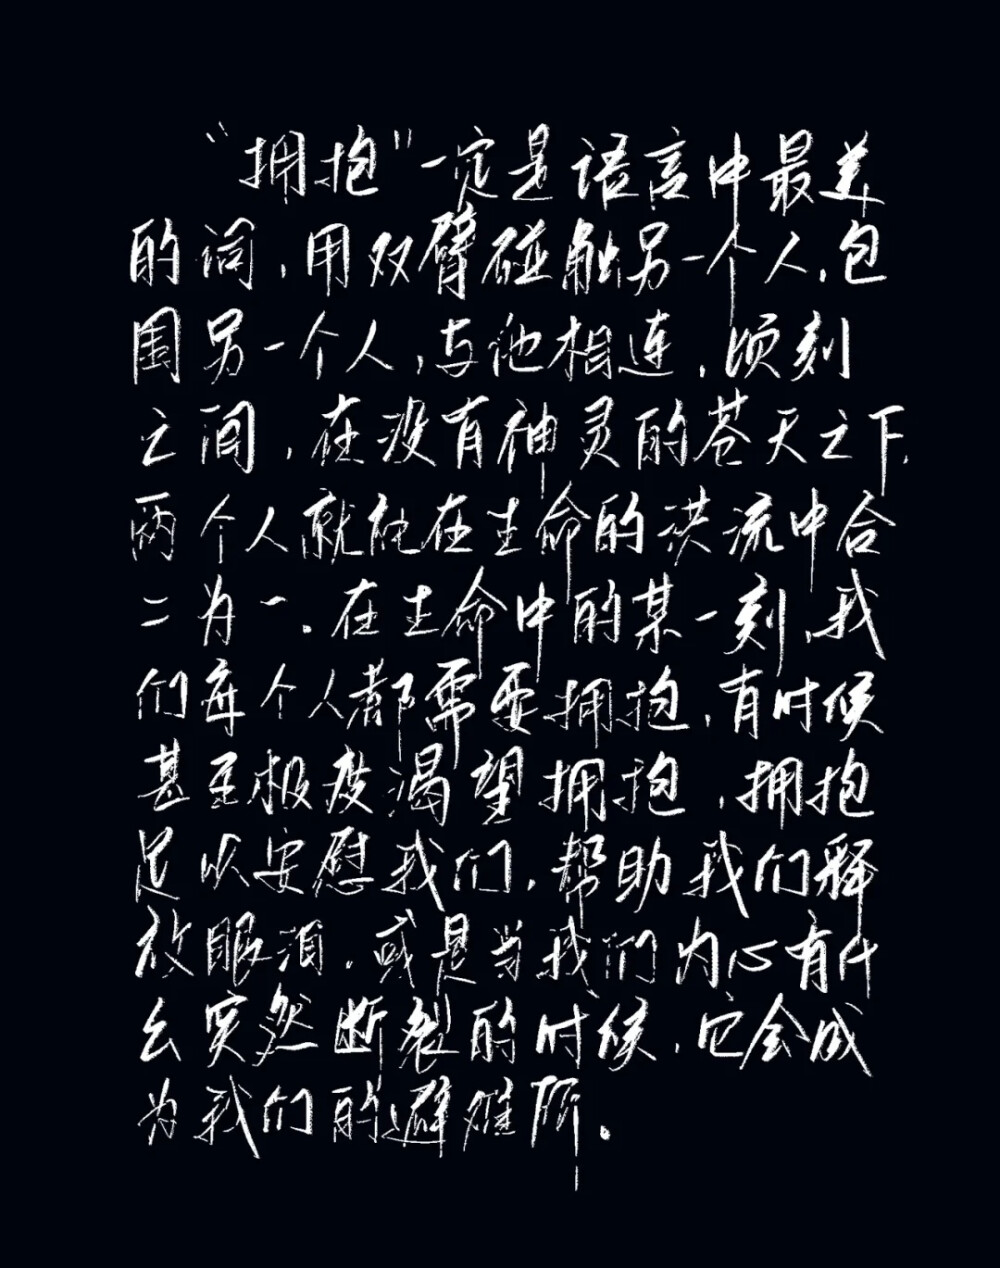 “拥抱”一定是语言中最美
的词，用双臂碰触另一个人，包
围另一个人，与他相连，顷刻
之间，在没有神灵的苍天之下，
两个人就能在生命的洪流中合
二为一。在生命中的某一刻，我
们每个人都需要拥抱，有时候
甚至极度渴望拥抱，拥抱
足以安慰我们，帮助我们释
放眼泪，或是当我们内心有什
么突然断裂的时候，它会成
为我们的避难所。